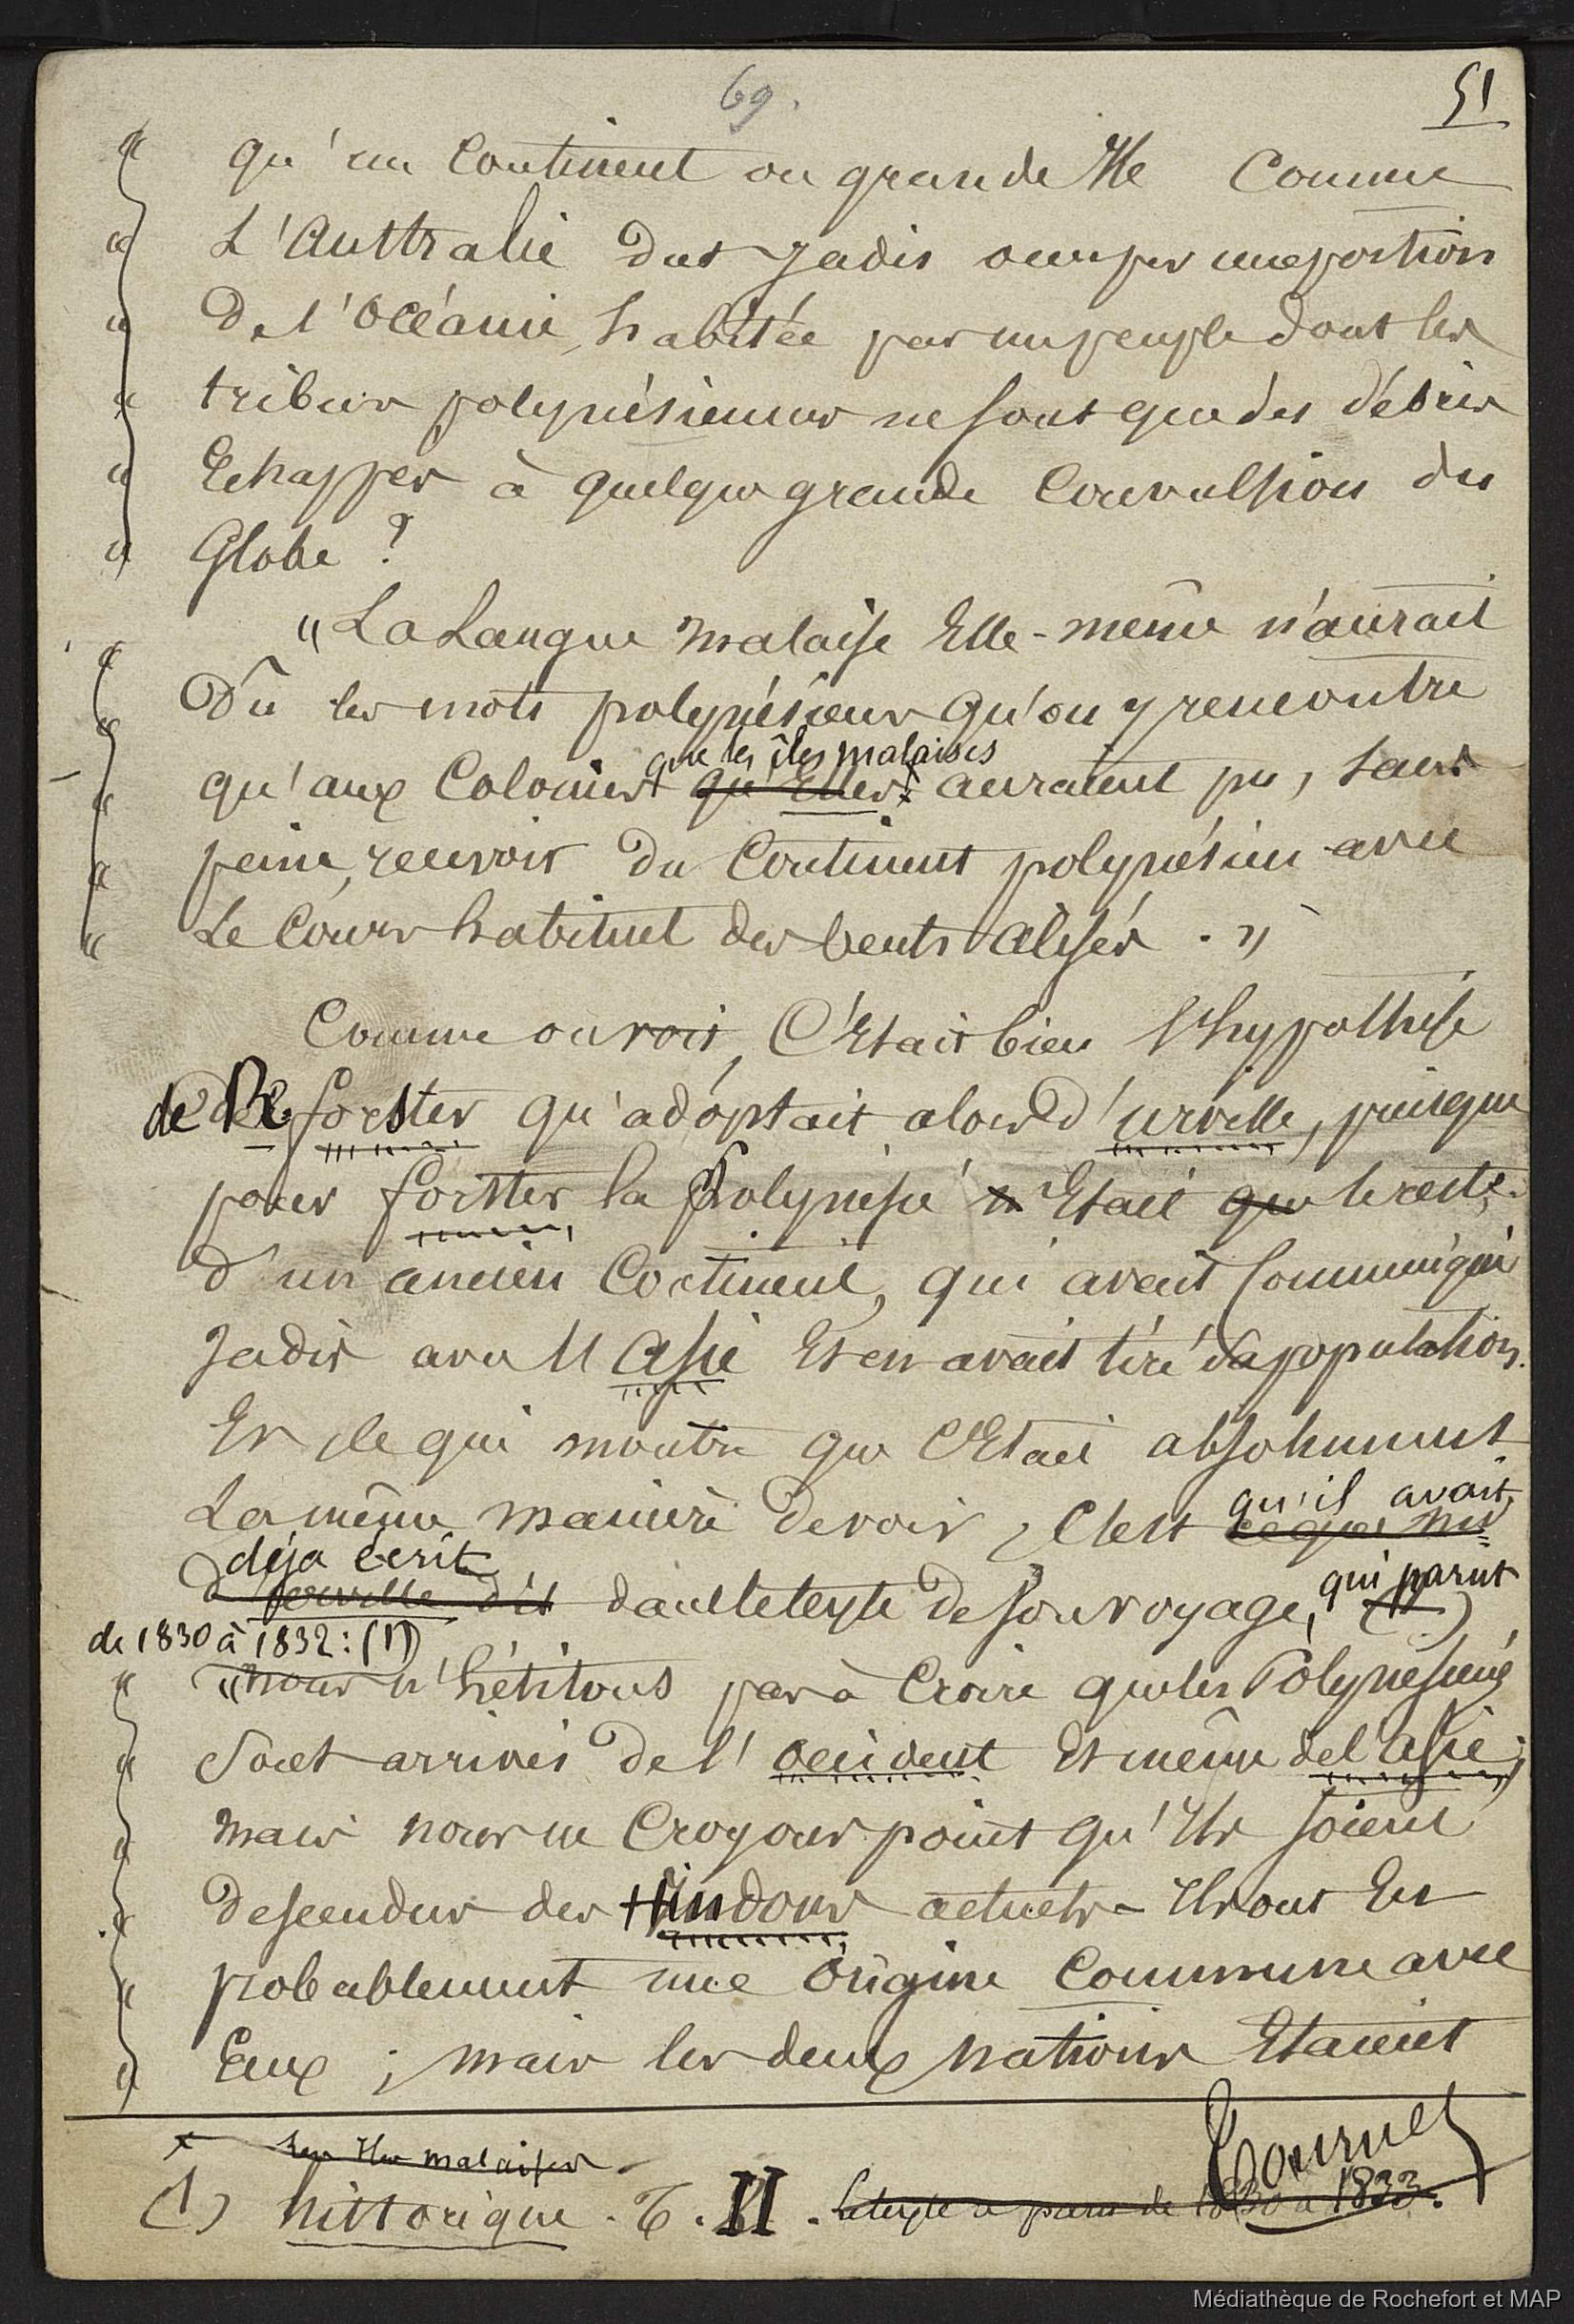 69.
51
" qu'un Continent ou grande Ile Comme
" L'Australie dut Jadis occuper une portion
" De l'Océanie, habitée par un peuple dont les
" tribus polynésiennes ne sont que des débris
" Echappés à quelque grande Convulsion du
" Globe ?
" " La Langue malaise Elle-même n'aurait
" Dû les mots polynésiens qu'on y rencontre
que les îles malaises
" qu'aux Colonies qu'Elles auraient pu, sans
" peine, recevoir du Continent polynésien avec
" Le Cours habituel des vents alisés. "
Comme on voit, C'Etait bien l'hypothèse
de R. forster qu'adoptait alors d'urville, puisque
pour forster la Polynésie n'Etait que le reste
d'un ancien Continent, qui avait Communiqué
Jadis avec l'Asie Et en avait tiré sa population.
Et ce qui montre que C'Etait absolument
qu'il avait
La même manière de voir, C'est ce que
déjà écrit
d'urville dit dans le texte de son voyage, qui parut
de 1830 à 1832 : (1)
" " nous n'hésitons pas à Croire que les Polynésiens
" Sont arrivés de l'occident Et même de l'asie ;
" mais nous ne Croyons point qu'Ils soient
" descendus des Hindous actuels - Ils ont Eu
" probablement une origine Commune avec
" Eux ; mais les deux nations Etaient
Tournez
x les Iles malaises
(1) historique. T. II. Le texte a paru de 1830 à 1833.
Médiathèque de Rochefort et MAP